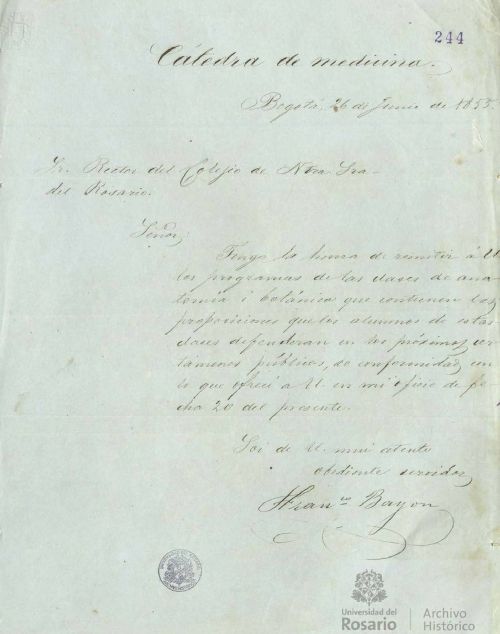 244
Cátedra de medicina.
Bogotá, 26 de Junio de 1855.
Sr. Rector del Colejio de Ntra. Sra-
del Rosario.
Señor,
Tengo la honra de remitir á U
los programas de las clases de ana
tomía i botánica que contienen las
proposiciones que los alumnos de estas
clases defenderan en los prósimos cer
támenes públicos, de conformidad con
lo que ofrecí a U. en mi oficio de fe
cha 20 del presente.
Soi de U. mui atento
obediente servidor,
Franco. Bayon
Universidad del
Rosario
Archivo
Histórico